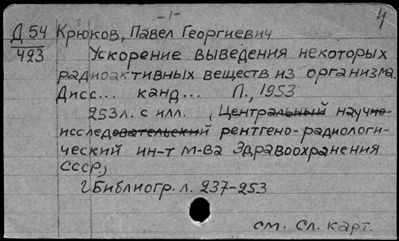 -1-
4
Д 54 Крюков, Павел Георгиевич
493 Ускорение выведения некоторых
радиоактивных веществ из организма.
Дисс... канд... Л., 1953
253л. с илл. (Центральный научно-
исследовательский рентгено-радиологи-
ческий ин-т М-ва Здравоохранения
СССР)
Библиогр. л. 237-253
см. сл. карт.